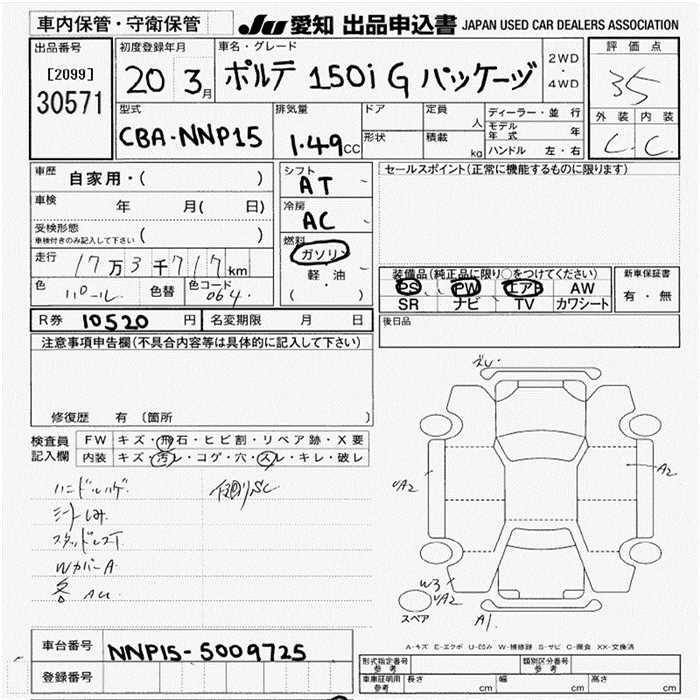 車内保管・守衛保管
JU 愛知 出品申込書 JAPAN USED CAR DEALERS ASSOCIATION
出品番号
[2099]
30571
初度登録年月
20 3月
車名・グレード
ポルテ 150i G パッケージ
2WD
・
4WD
評価点
35
外装 内装
C C
型式
CBA-NNP15
排気量
1.49cc
ドア
形状
定員 人
積載 kg
ディーラー・並行
モデル年式 年
ハンドル 左・右
車歴 自家用・( )
車検 年 月( 日)
受検形態
車検付きのみ記入して下さい ( )
走行 17万3千717km
色 パール 色替 色コード 064
シフト
AT
冷房
AC
燃料
ガソリン
軽・油
( )
セールスポイント(正常に機能するものに限ります)
装備品(純正品に限り○をつけてください)
PS PW エアB AW
SR ナビ TV カワシート
新車保証書
有・無
R券 10520 円 名変期限 月 日
後日品
注意事項申告欄(不具合内容等は具体的に記入して下さい)
修復歴 有〔箇所 〕
検査員
記入欄
FW キズ・飛石・ヒビ割・リペア跡・X要
内装 キズ・汚レ・コゲ・穴・スレ・キレ・破レ
ハンドルハゲ
シートしみ
スタッドレスT
WカバーA
各 AU
ズレ
UA2
A2
W3
UA2
A1
スペア
A-キズ E-エクボ U-凹み W-補修跡 S-サビ C-腐食 XX-交換済
車台番号 NNP15-5009725
登録番号
形式指定番号
参考
類別区分番号
参考
車庫証明用
参考
長さ cm 幅 cm 高さ cm